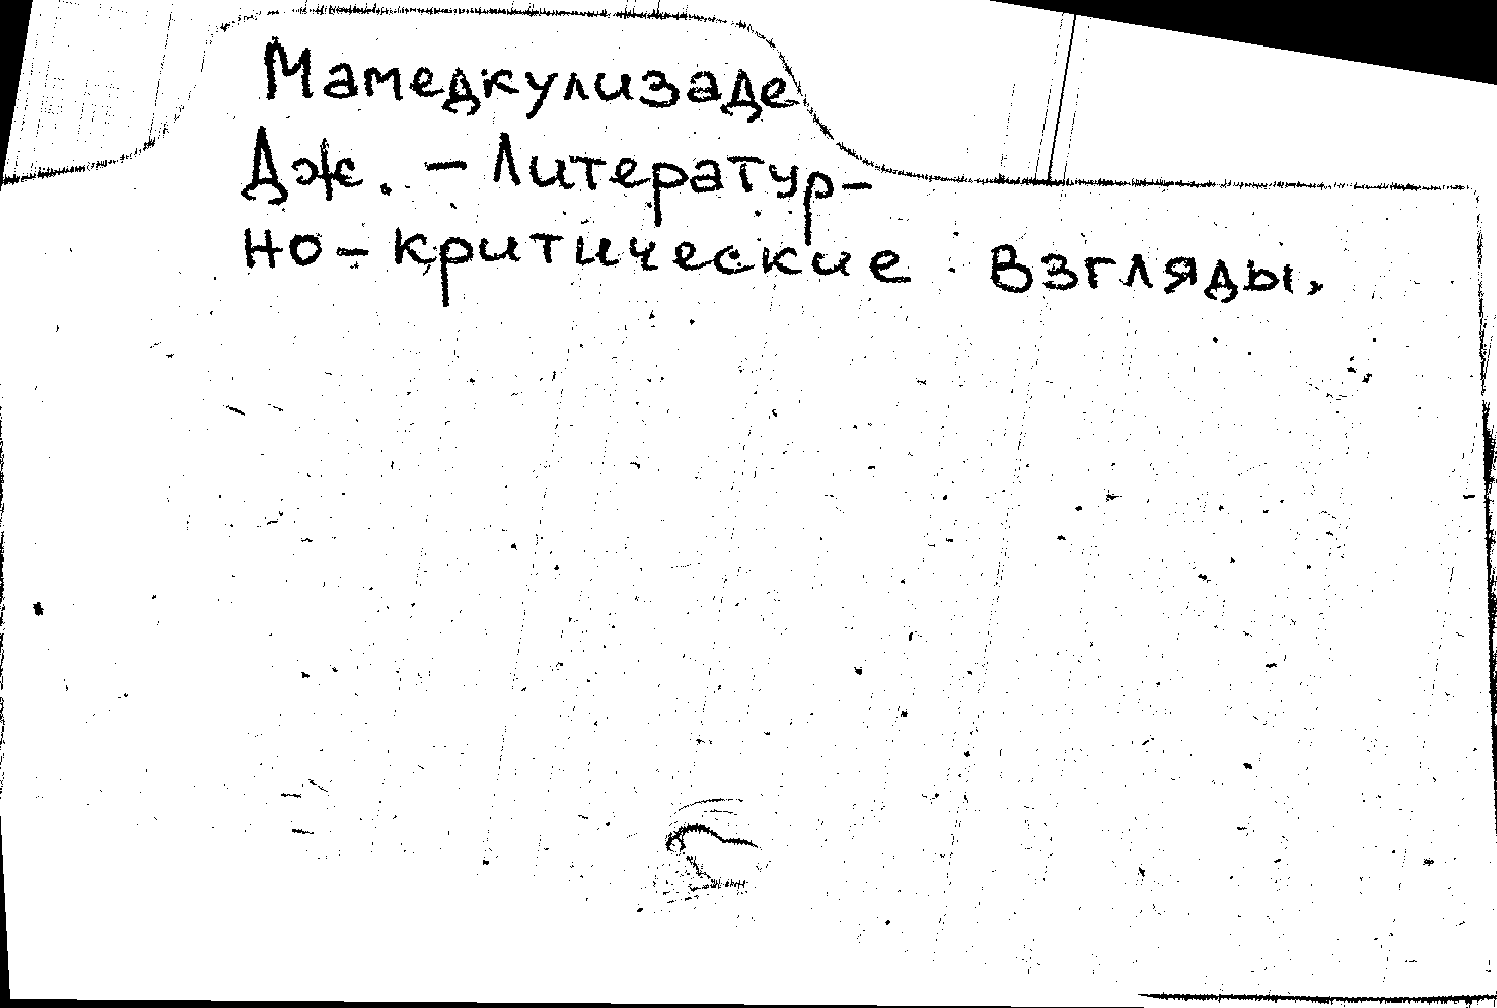 Мамедкулизаде
Дж. - Литератур-
но-критические взгляды.